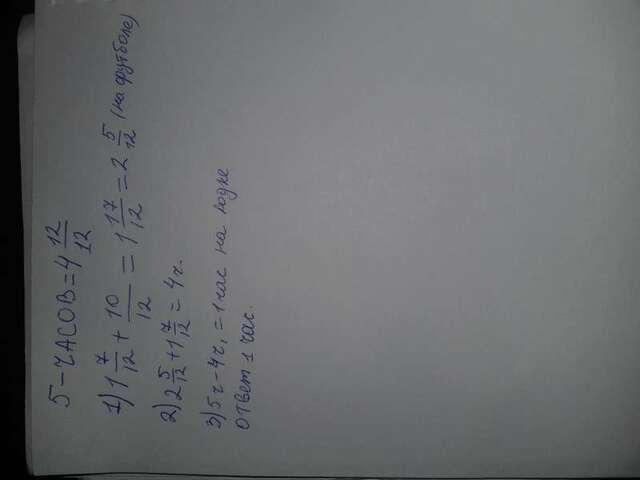 5-ЧАСОВ = 4 12/12
1) 1 7/12 + 10/12 = 1 17/12 = 2 5/12 (на футболе)
2) 2 5/12 + 1 7/12 = 4ч.
3) 5ч - 4ч, = 1 час на лодке
ответ 1 час.